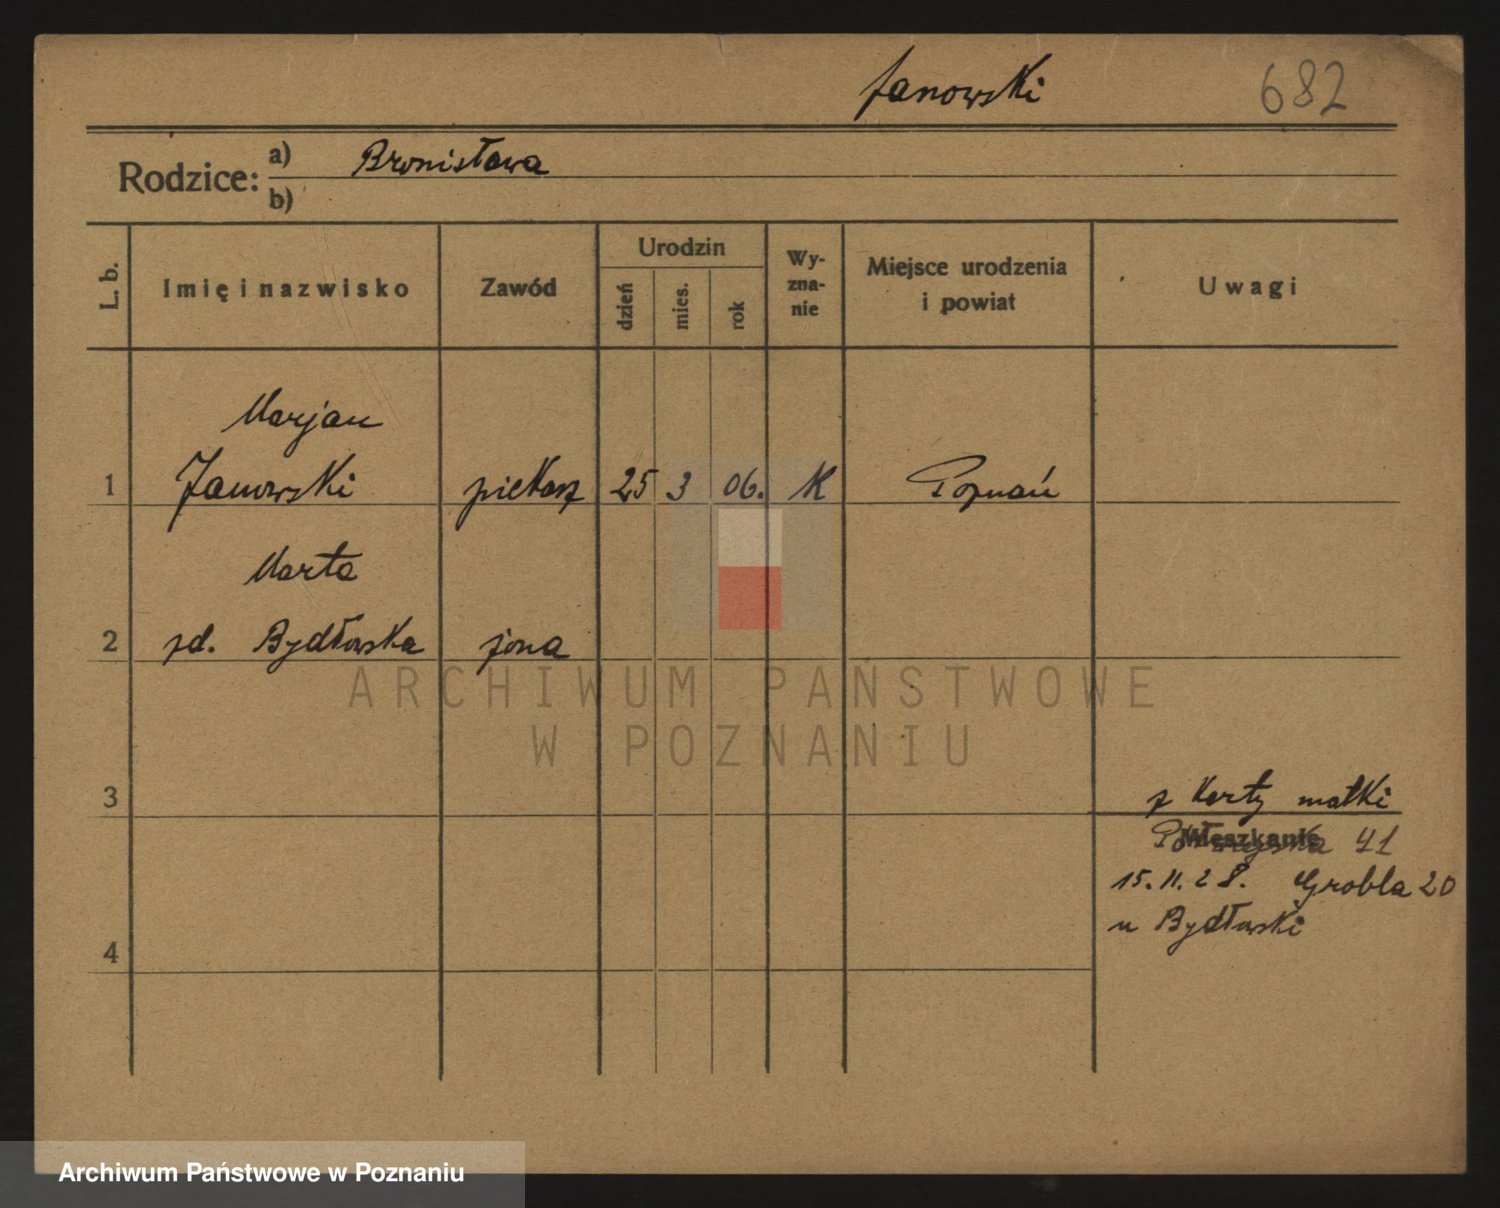 Janowski 682
Rodzice: a) Bronisława
b)
L. b. Imię i nazwisko Zawód Urodzin dzień mies. rok Wy-zna-nie Miejsce urodzenia i powiat Uwagi
Marjan
1 Janowski piekarz 25 3 06. K Poznań
Marta
2 zd. Bydłowska żona
ARCHIWUM PAŃSTWOWE
W POZNANIU
3 z karty matki
Mieszkanie 41
15.11.28. Grobla 20
u Bydłowski
4
Archiwum Państwowe w Poznaniu